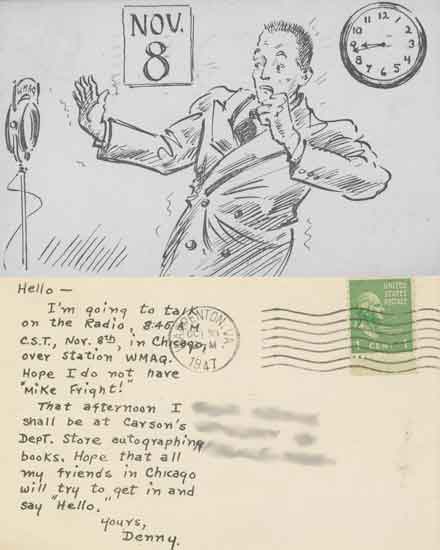 NOV.
8
WMAQ
Hello —
I'm going to talk
on the Radio, 8:45 A.M.
C.S.T., Nov. 8th, in Chicago,
over Station WMAQ.
Hope I do not have
"Mike Fright!"
That afternoon I
shall be at Carson's
Dept. Store autographing
books. Hope that all
my friends in Chicago
will try to get in and
say "Hello."
Yours,
Denny.
WARRENTON, VA.
OCT
1947
UNITED
STATES
POSTAGE
1 CENT 1